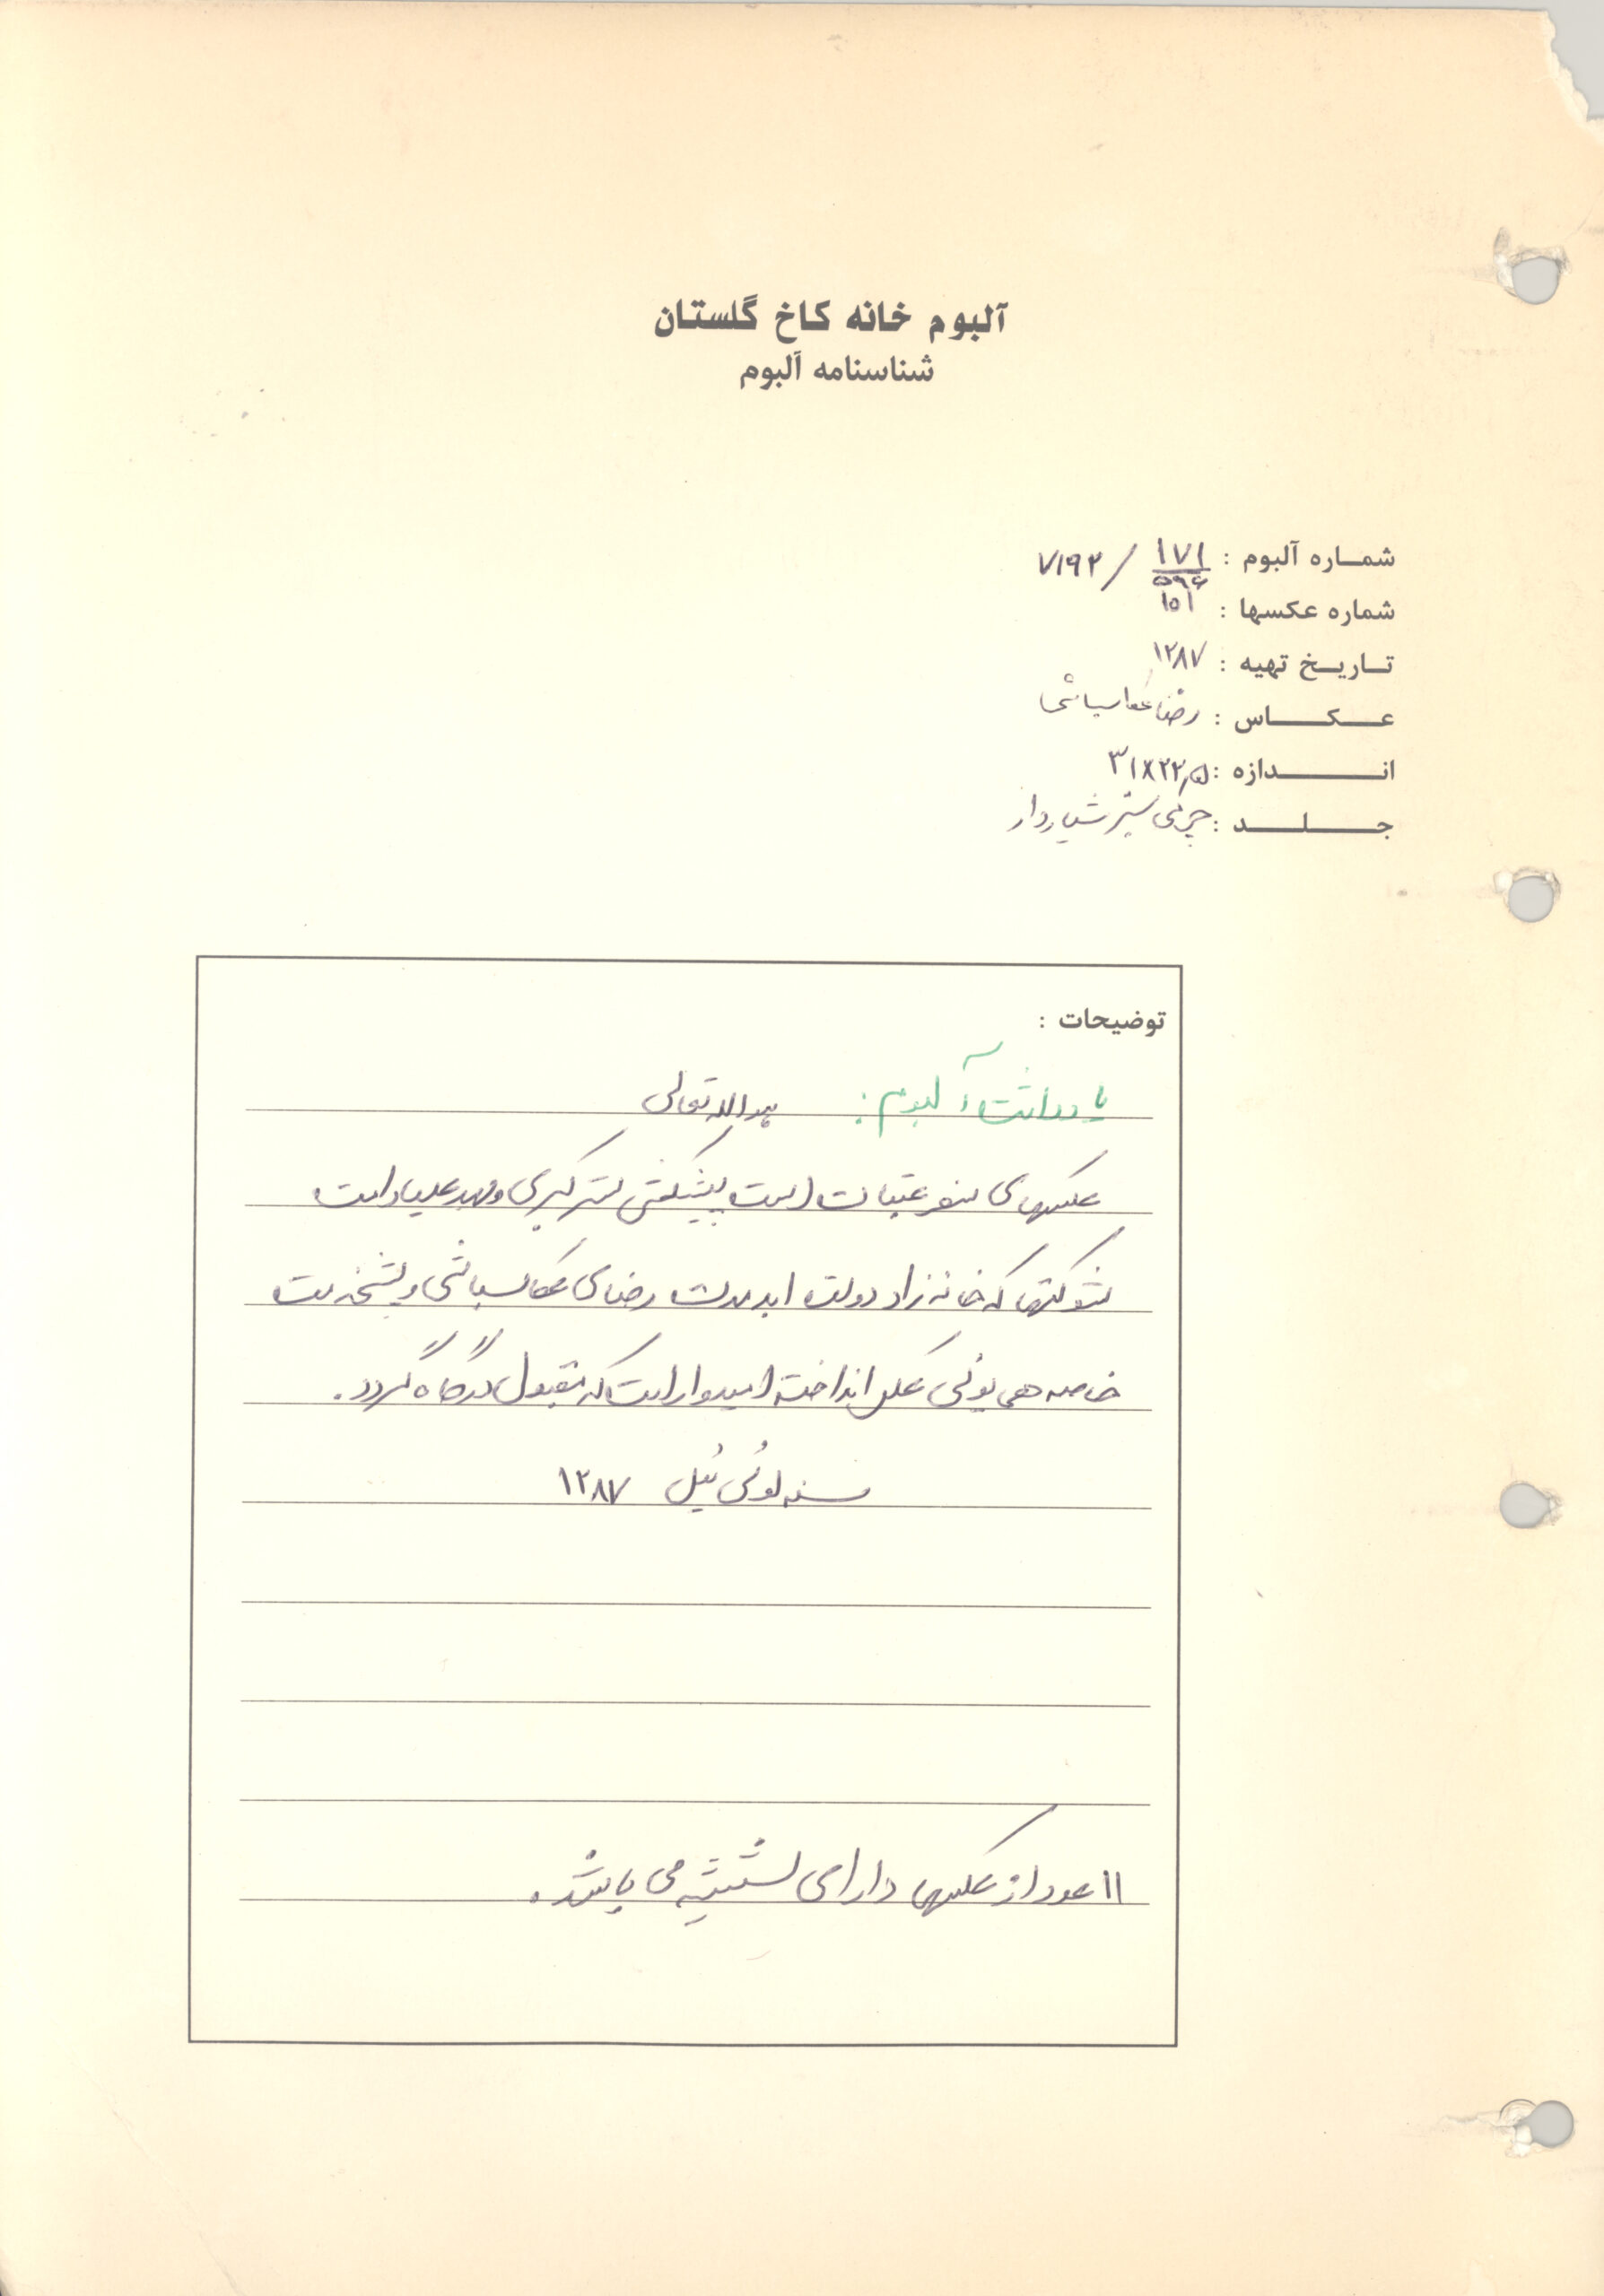 آلبوم خانه کاخ گلستان
شناسنامه آلبوم
شماره آلبوم : ۱۷۱ / ۷۱۹۲
۵۹۶
شماره عکسها : ۱۵۱
تاریخ تهیه : ۱۲۸۷
عکاس : رضا عکاسباشی
اندازه : ۳۱×۲۲٫۵
جلد : چرمی سبز شیاردار
توضیحات :
یادداشت آلبوم : هوالله تعالی
عکسهای سفر عتبات است پیشکش ستر کبری و مهد علیا دامت
شوکتها که خانه زاد دولت ابد مدت رضای عکاسباشی و پیشخدمت
خاصه همیونی عکس انداخته امیدوار است که مقبول درگاه گردد.
سنه لوئی ئیل ۱۲۸۷
۱۱ عدد از عکسها دارای شیشه می باشد.